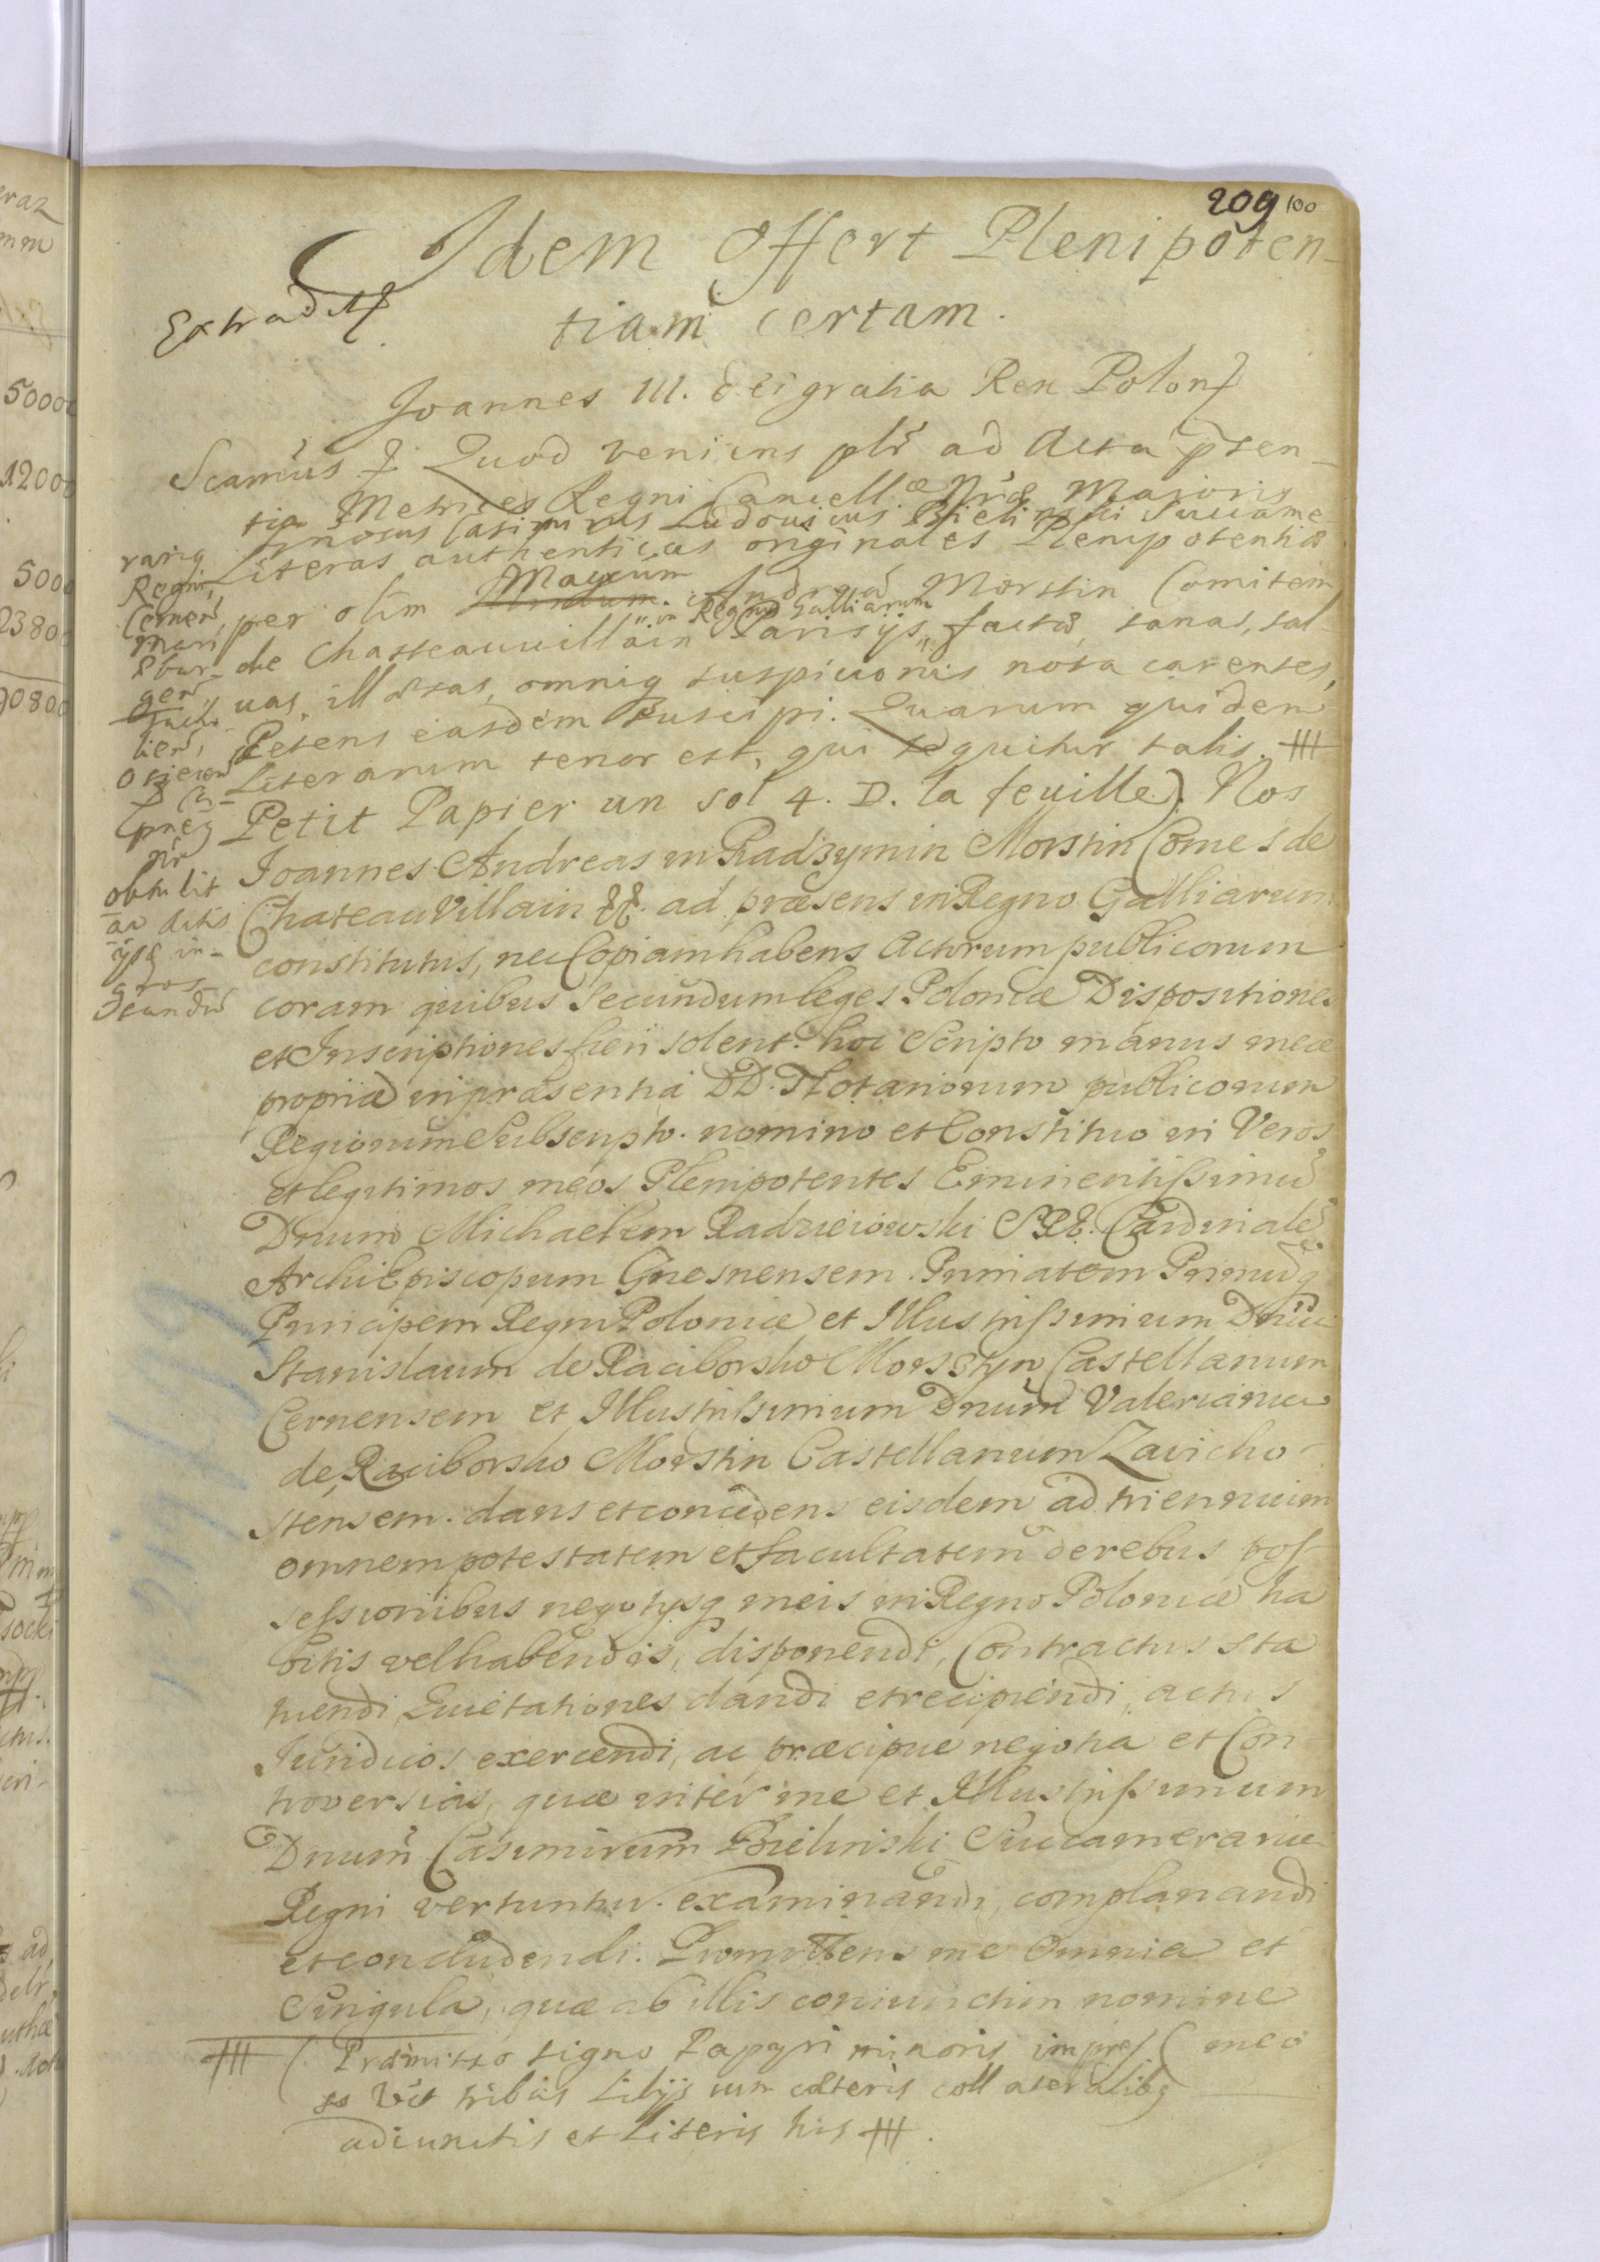 209 100
Idem Offert Plenipoten-
tiam certam.
Extradit
Joannes III. Dei gratia Rex Polon
Quod veniens ad Acta pten-
tia Metrices Regni Cancellæ Nræ Maioris
Gnosus Casimirus Ludovicus Bielinski Succame
rariq
Regni,
Cernen
Mari
Ebur-
gen
Osiecen
obtulit
ac
Literas authenticas originales Plenipotentiæ
per olim Magcum Andream Morstin Comitem
de Chasteauvillain Parisijs in Regno Galliarum factas, sanas, sal-
uas, illæsas, omniq suspicionis nota carentes,
Petens easdem suscipi. Quarum quidem
Literarum tenor est, qui sequitur talis.
Petit Papier un sol 4. D. la feuille). Nos
Joannes Andreas in Radzymin Morstin Comes de
ChateauVillain &. ad præsens in Regno Galliarum
constitutus, nec Copiam habens Actorum publicorum
coram quibus secundum leges Poloniæ Dispositiones
et Inscriptiones fieri solent. hoc Scripto manus meæ
propriæ in præsentia DD. Notariorum publicorum
Regiorum Subscripto. nomino et Constituo in Veros
et legitimos meos Plenipotentes Eminentissimũ
Dnum Michaelem Radzieiowski SRE. Cardinalẽ
ArchiEpiscopum Gnesnensem. Primatem Primũq
Principem Regni Poloniæ et Illustrissimum Dnũ
Stanislaum de Raciborsko Morsstyn Castellanum
Cernensem et Illustrissimum Dnũm Valerianũ
de Raciborsko Morstin Castellanum Zavicho-
stensem. dans et concedens eisdem ad triennium
omnem potestatem et facultatem de rebus pos
sessionibus negotysq meis in Regno Poloniæ ha
bitis vel habendis, disponendi, Contractus sta
tuendi Quietationes dandi et recipiendi, actus
Juridicos exercendi, ac præcipue negotia et Con
troversias, quæ inter me et Illustrissimum
Dnum Casimirum Bielinski Succamerariũ
Regni vertuntur. examinandi, complanandi
et concludendi. Promittens me omnia et
Singula, quæ ab illis coniunctim nomine
meo
( Præmisso signo Papyri minoris impres
so tribus Lilijs cum cæteris collateralibq
adiunctis et Literis his